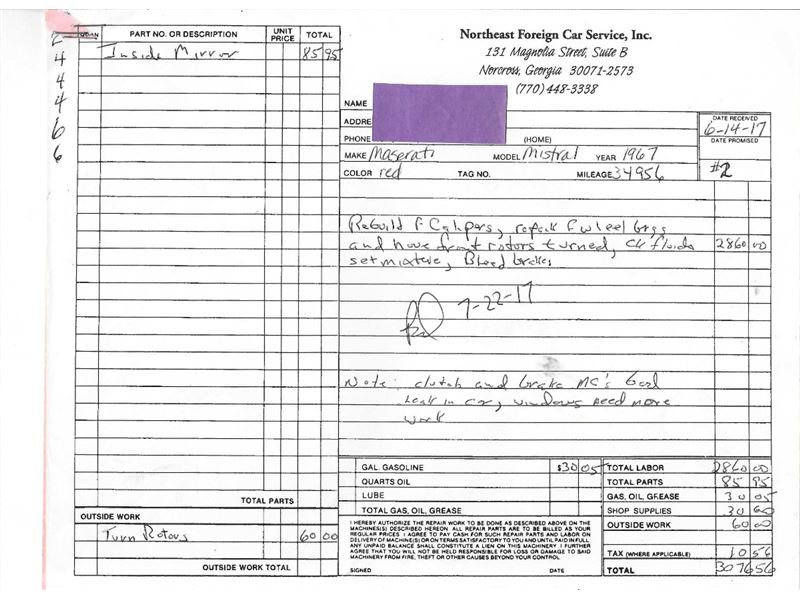 2
4
4
4
6
6
QUAN
PART NO. OR DESCRIPTION
UNIT PRICE
TOTAL
Inside Mirror 85 95
Northeast Foreign Car Service, Inc.
131 Magnolia Street, Suite B
Norcross, Georgia 30071-2573
(770) 448-3338
NAME
ADDRE
PHONE (HOME)
DATE RECEIVED
6-14-17
DATE PROMISED
MAKE Maserati MODEL Mistral YEAR 1967
COLOR red TAG NO. MILEAGE 34956
#2
Rebuild F Calipers, repack F wheel brgs
and have front rotors turned, Ck fluids 2860 00
set mixture, Bleed brakes
7-22-17
Note: clutch and brake MC's bad
leak in car, windows need more
work
TOTAL PARTS
OUTSIDE WORK
Turn Rotors 60 00
OUTSIDE WORK TOTAL
GAL. GASOLINE $30 05
QUARTS OIL
LUBE
TOTAL GAS, OIL, GREASE
I HEREBY AUTHORIZE THE REPAIR WORK TO BE DONE AS DESCRIBED ABOVE ON THE
MACHINE(S) DESCRIBED HEREON. ALL REPAIR PARTS ARE TO BE BILLED AS YOUR
REGULAR PRICES. I AGREE TO PAY CASH FOR SUCH REPAIR PARTS AND LABOR ON
DELIVERY OF MACHINE(S) OR ON TERMS SATISFACTORY TO YOU AND UNTIL PAID IN FULL.
ANY UNPAID BALANCE SHALL CONSTITUTE A LIEN ON THIS MACHINERY. I FURTHER
AGREE THAT YOU WILL NOT BE HELD RESPONSIBLE FOR LOSS OR DAMAGE TO SAID
MACHINERY FROM FIRE, THEFT OR OTHER CAUSES BEYOND YOUR CONTROL.
SIGNED DATE
TOTAL LABOR 2860 00
TOTAL PARTS 85 95
GAS, OIL, GREASE 30 05
SHOP SUPPLIES 30 00
OUTSIDE WORK 60 00
TAX (WHERE APPLICABLE) 10 56
TOTAL 3076 56